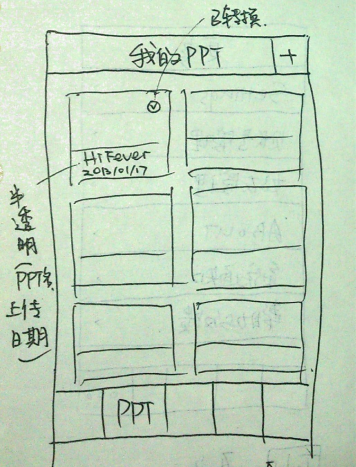 已转换.
我的PPT
+
HiFever
2013/01/17
半透明(PPT名
上传日期)
PPT